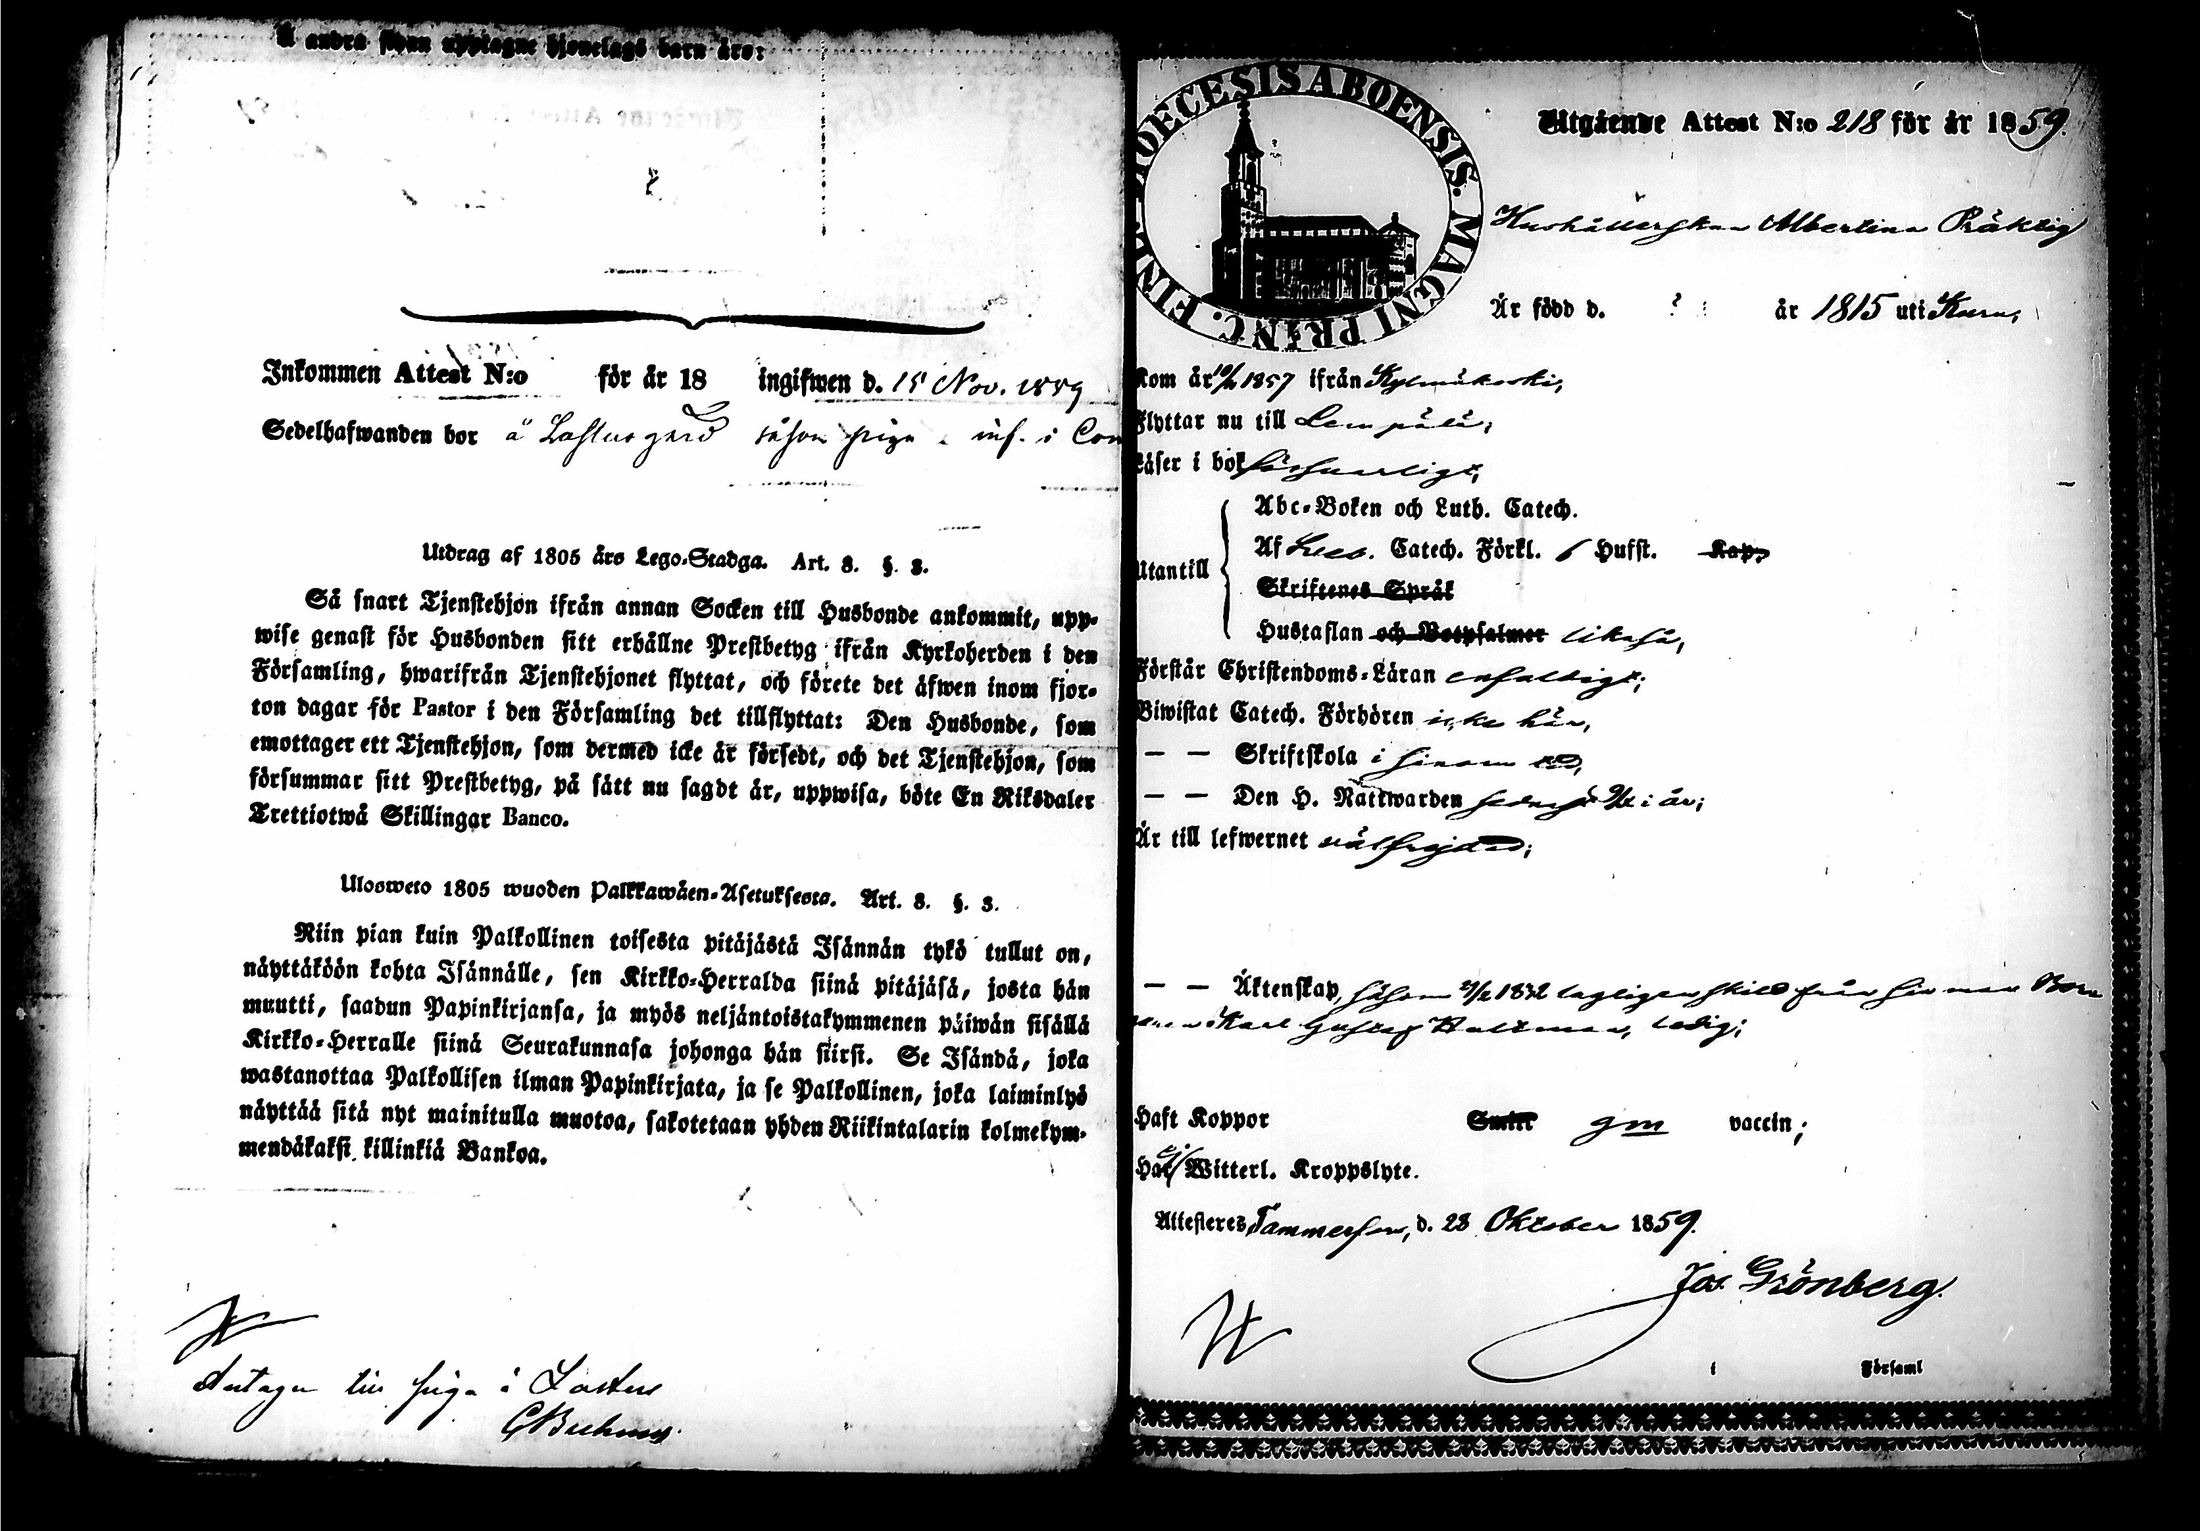 Å andra sidan upptagne hjonelags barn äro:
Inkommen Attest N:o för år 18 ingifwen d. 15 Nov. 1859
Sedelhafwanden bor å Lastus gård såsom piga inf. i
Utdrag af 1805 års Lego-Stadga. Art. 8. §. 3.
Så snart Tjenstehjon ifrån annan Socken till Husbonde ankommit, upp-
wise genast för Husbonden sitt erhållne Prestbetyg ifrån Kyrkoherden i den
Församling, hwarifrån Tjenstehjonet flyttat, och förete det äfwen inom fjor-
ton dagar för Pastor i den Församling det tillflyttat: Den Husbonde, som
emottager ett Tjenstehjon, som dermed icke är försedt, och det Tjenstehjon, som
försummar sitt Prestbetyg, på sätt nu sagdt är, uppwisa, böte En Riksdaler
Trettiotwå Skillingar Banco.
Ulosweto 1805 wuoden Palkkawäen-Asetuksesta. Art. 8. §. 3.
Niin pian kuin Palkollinen toisesta pitäjästä Isännän tykö tullut on,
näyttäköön kohta Isännälle, sen Kirkko-Herralda siinä pitäjäsä, josta hän
muutti, saadun Papinkirjansa, ja myös neljäntoistakymmenen päiwän sisällä
Kirkko-Herralle siinä Seurakunnasa johonga hän siirsi. Se Isändä, joka
wastanottaa Palkollisen ilman Papinkirjata, ja se Palkollinen, joka laiminlyö
näyttää sitä nyt mainitulla muotoa, sakotetaan yhden Riikintalarin kolmekym-
mendäkaksi killinkiä Bankoa.
Antagen till piga i Lastus
FINL. DIOECESIS ABOENSIS. MAGNI PRINC.
Utgående Attest N:o 218 för år 1859.
Hushållerskan Albertina Präktig
Är född d. ? år 1815 uti Kuru,
Kom år 10/11 1857 ifrån Kylmäkoski,
Flyttar nu till Lempälä;
Läser i bok försvarligt,
Utantill
Abc-Boken och Luth. Catech.
Af Sveb. Catech. Förkl. 6 Hufst. Kap.
Skriftenes Språk
Hustaflan och Botpsalmer likaså,
Förstår Christendoms-Läran enfaldigt;
Biwistat Catech. Förhören icke här,
— — Skriftskola i sinom tid,
— — Den H. Nattwarden senast i år;
Är till lefwernet välfrejdad;
— — Äktenskap, såsom 1832 lagligen skild från sin man
Karl Gustaf Hultman, ledig;
Haft Koppor Smitt gm vaccin;
Har ej Witterl. Kroppslyte.
Attesteres Tammerfors, d. 28 Oktober 1859.
Jos. Grönberg.
i Församl